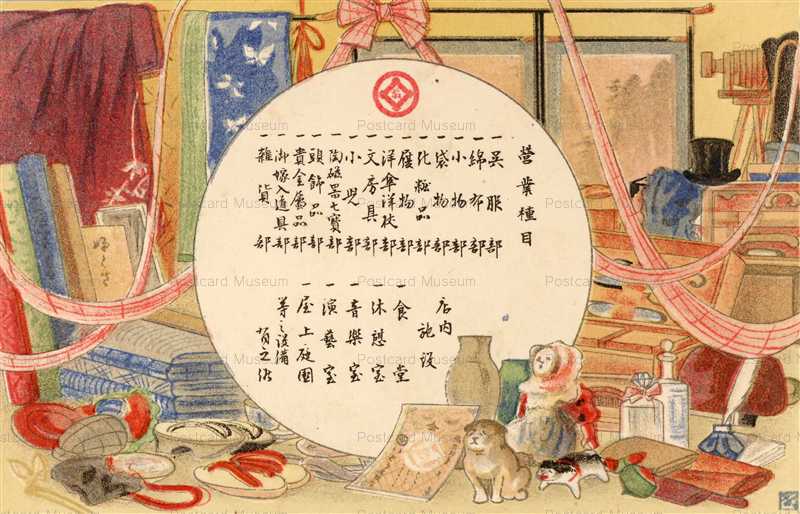 営業種目
一 呉服部
一 綿布部
一 小物部
一 袋物部
一 化粧品部
一 履物部
一 洋傘洋杖部
一 文房具部
一 小児部
一 陶磁器七宝部
一 頭飾品部
一 貴金属品部
一 御嫁入道具部
一 雑貨部
店内施設
一 食堂
一 休憩室
一 音楽室
一 演藝室
一 屋上庭園
等之設備
Postcard Museum